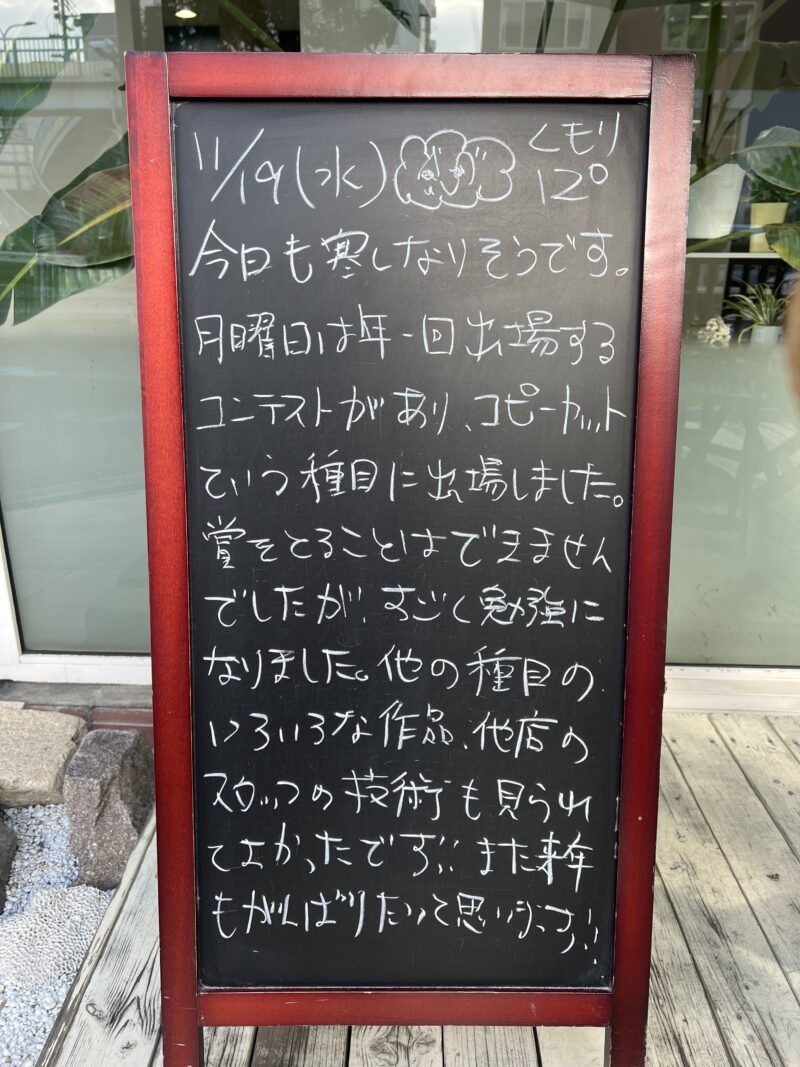 11/19(水) くもり 12°
今日も寒しなりそうです。
月曜日は年一回出場する
コンテストがあり、コピーカット
ていう種目に出場しました。
賞をとることはできません
でしたが、すごく勉強に
なりました。他の種目の
いろいろな作品、他店の
スタッフの技術も見られ
てよかったです!! また来年
もがんばりたいって思います!!